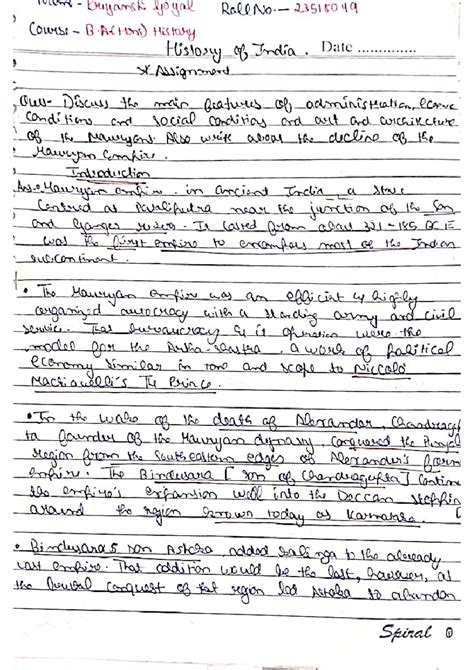 Name - Priyanshi Goyal Roll No. - 23518049
Course - B.A (Hons) History
History of India. Date ..............
* Assignment
Ques- Discuss the main features of administration, economic
conditions and social conditions and art and architecture
of the Mauryans. Also write about the decline of the
Mauryan Empire.
Introduction
Ans- Mauryan empire, in ancient India, a state
centred at Pataliputra near the junction of the Son
and Ganges rivers. It lasted from about 321-185 BCE
was the first empire to encompass most of the Indian
subcontinent.
• The Mauryan empire was an efficient & highly
organized autocracy with a standing army and civil
service. That bureaucracy & its operation were the
model for the Artha-shastra, a work of political
economy similar in tone and scope to Niccolo
Machiavelli's The Prince.
• In the wake of the death of Alexander, Chandragup
ta founder of the Mauryan dynasty, conquered the Punjab
region from the Southeastern edges of Alexander's former
empire. The Bindusara [son of Chandragupta] continued
the empire's expansion well into the Deccan stopping
around the region known today as Karnataka.
• Bindusara's son Ashoka, added Kalinga to the already
vast empire. That addition would be the last, however, as
the brutal conquest of that region led Ashoka to abandon
Spiral